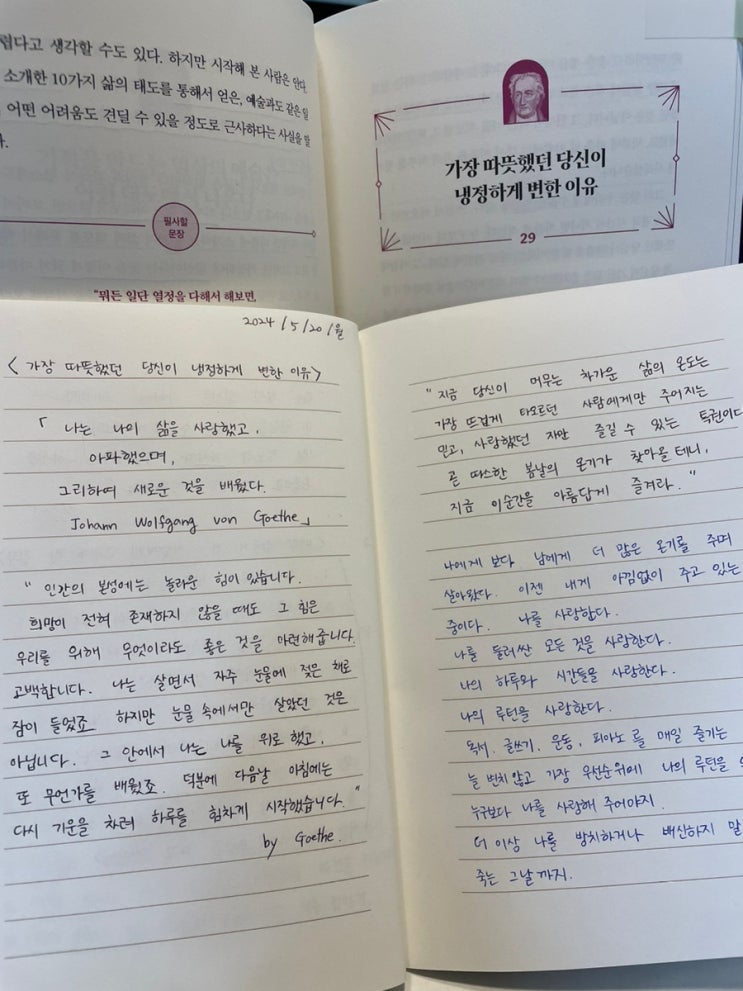 럽다고 생각할 수도 있다. 하지만 시작해 본 사람은 안다.
소개한 10가지 삶의 태도를 통해서 얻은, 예술과도 같은 일
어떤 어려움도 견딜 수 있을 정도로 근사하다는 사실을 말
다.
필사할
문장
"뭐든 일단 열정을 다해서 해보면,
가장 따뜻했던 당신이
냉정하게 변한 이유
29
2024 / 5 / 20 / 월
< 가장 따뜻했던 당신이 냉정하게 변한 이유>
「 나는 나의 삶을 사랑했고,
아파했으며,
그리하여 새로운 것을 배웠다.
Johann Wolfgang von Goethe」
" 인간의 본성에는 놀라운 힘이 있습니다.
희망이 전혀 존재하지 않을 때도 그 힘은
우리를 위해 무엇이라도 좋은 것을 마련해줍니다.
고백합니다. 나는 살면서 자주 눈물에 젖은 채로
잠이 들었죠. 하지만 눈물 속에서만 살았던 것은
아닙니다. 그 안에서 나는 나를 위로했고,
또 무언가를 배웠죠. 덕분에 다음날 아침에는
다시 기운을 차려 하루를 힘차게 시작했습니다."
by Goethe.
" 지금 당신이 머무는 차가운 삶의 온도는
가장 뜨겁게 타오르던 사람에게만 주어지는
믿고, 사랑했던 자만 즐길 수 있는 특권이다
곧 따스한 봄날의 온기가 찾아올 테니,
지금 이순간을 아름답게 즐겨라. "
나에게 보다 남에게 더 많은 온기를 주며
살아왔다. 이젠 내게 아낌없이 주고 있는
중이다. 나를 사랑한다.
나를 둘러싼 모든 것을 사랑한다.
나의 하루와 시간들을 사랑한다.
나의 루틴을 사랑한다.
독서, 글쓰기, 운동, 피아노를 매일 즐기는
늘 변치 않고 가장 우선순위에 나의 루틴을
누구보다 나를 사랑해 주어야지.
더 이상 나를 방치하거나 배신하지 말
죽는 그날까지.